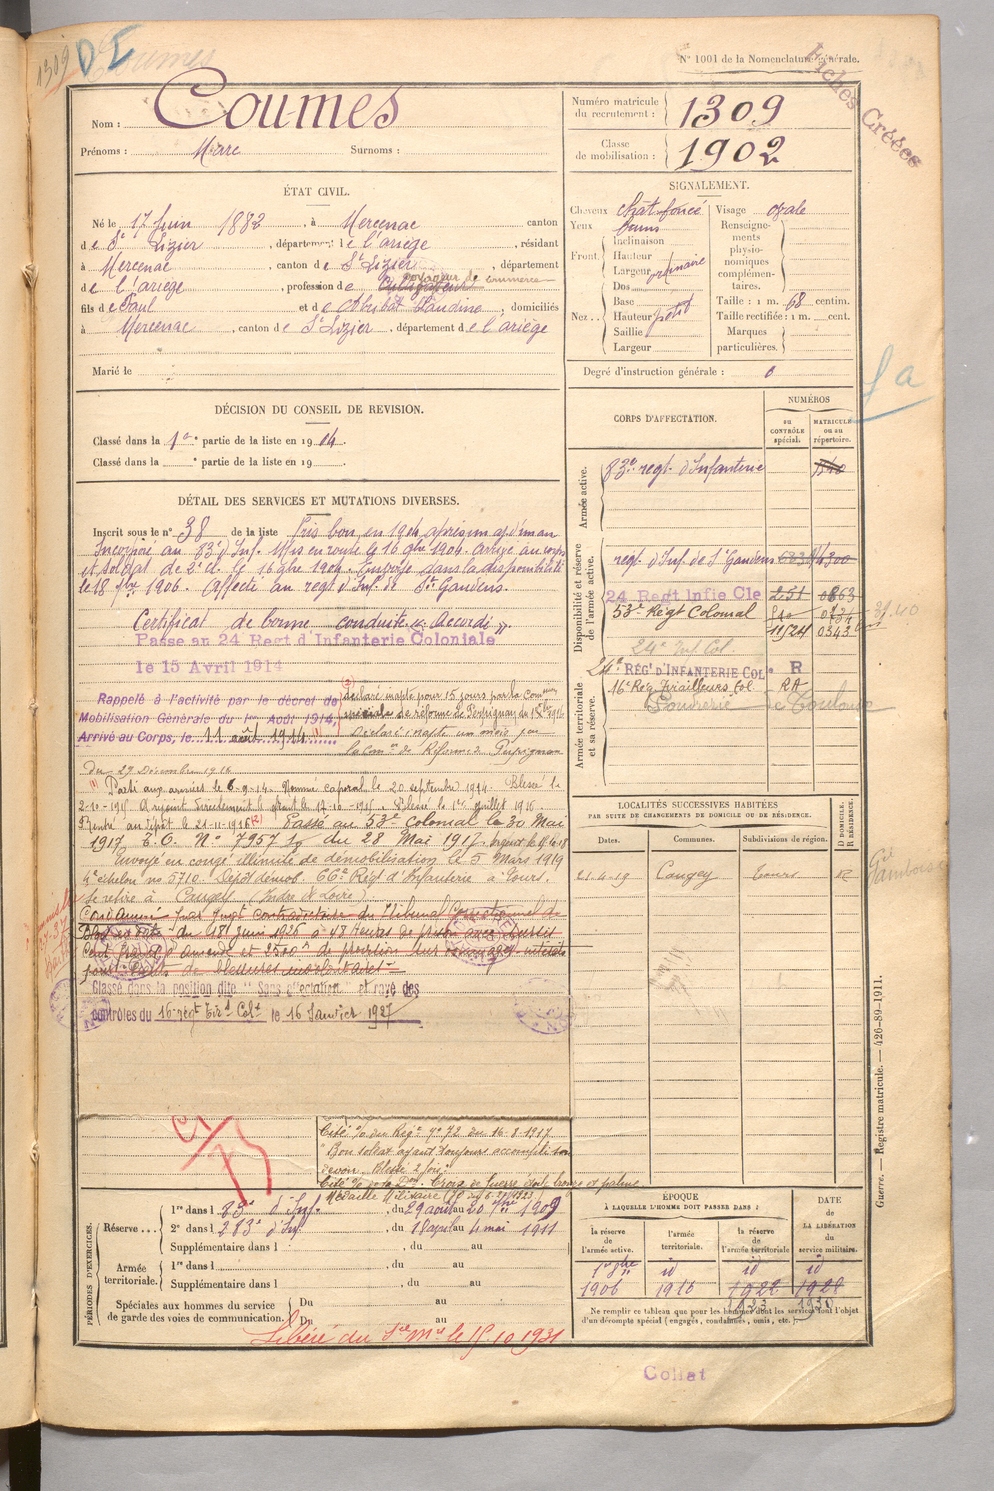 1309
DI
Coumes
N° 1001 de la Nomenclature générale.
Fiches Créées
Nom : Coumes
Prénoms : Marc Surnoms :
Numéro matricule du recrutement : 1309
Classe de mobilisation : 1902
ÉTAT CIVIL.
Né le 17 Juin 1882, à Mercenac canton
de St Lizier, département de l'ariège, résidant
à Mercenac, canton de St Lizier, département
de l'ariège, profession de Cultivateur voyageur de commerce
fils de Paul et de Abribat Naudine, domiciliés
à Mercenac, canton de St Lizier, département de l'ariège
Marié le
SIGNALEMENT.
Cheveux chat. foncé
Yeux bruns
Front. Inclinaison
Hauteur
Largeur ordinaire
Nez. Dos
Base
Hauteur petit
Saillie
Largeur
Visage ovale
Renseignements physionomiques complémentaires.
Taille : 1 m. 68 centim.
Taille rectifiée : 1 m. cent.
Marques particulières.
Degré d'instruction générale : 0
DÉCISION DU CONSEIL DE REVISION.
Classé dans la 1re partie de la liste en 1904.
Classé dans la e partie de la liste en 19
DÉTAIL DES SERVICES ET MUTATIONS DIVERSES.
Inscrit sous le n° 38 de la liste Pris bon en 1904 après un ajt d'un an
Incorporé au 83e d'Inf. Mis en route le 16 9bre 1904. arrivé au corps
et soldat de 2e cl. le 16 9bre 1904. Envoyé dans la disponibilité
le 18 1906. Affecté au regt d'Inf. de St Gaudens.
Certificat de bonne conduite "Accordé"
Passé au 24 Regt d'Infanterie Coloniale
le 15 Avril 1914
Rappelé à l'activité par le décret de
Mobilisation Générale du 1er Août 1914,
Arrivé au Corps, le 11 août 1914 (1)
(2) déclaré inapte pour 15 jours par la Comon
spéciale de réforme de Perpignan du 1er 1916
Déclaré inapte un mois par
la Comon de Réforme de Perpignan
du 29 Décembre 1916
(1) Parti aux armées le 6-9-14. Nommé caporal le 20 septembre 1914. Blessé le
2-10-1915. A rejoint directement le front le 12-10-1915. Blessé le 1er Juillet 1916.
Rentré au dépôt le 21-11-1916 (2) Passé au 53e colonial le 30 Mai
1917 E. O. N° 7957 du 28 Mai 1917.
Envoyé en congé illimité de démobilisation le 5 Mars 1919
4e échelon no 5710. Dépôt démob. 66e Régt d'Infanterie à Tours.
Se retire à Cangey (Indre & Loire)
Condamné par jugt contradictoire du Tribunal Correctionnel de
du 18 Juin 1926 à 48 heures de prison avec sursis
Cent francs d'amende et 2500 f de provision sur dommages intérêts
pour de blessures involontaires
Classé dans la position dite "Sans affectation" et rayé des
contrôles du 16e régt Tirs Colx le 16 Janvier 1927
Cité % du Régt n° 72 du 16-8-1917
"Bon soldat ayant toujours accompli son
devoir. Blessé 2 fois."
Cité % de la Don. Croix de Guerre étoile bronze et palme
Médaille Militaire
CORPS D'AFFECTATION.
NUMÉROS
au CONTRÔLE spécial.
MATRICULE ou au répertoire.
Armée active.
83e regt. d'Infanterie
Disponibilité et réserve de l'armée active.
regt d'Inf. de St Gaudens 1300
24 Regt Infie Cle 251 0863
53e Régt Colonial
11/24 0343
24e Inf. Col.
24e RÉGt D'INFANTERIE COLe R
Armée territoriale et sa réserve.
16e Reg. Tirailleurs Col. RA
Poudrerie de Toulouse
LOCALITÉS SUCCESSIVES HABITÉES
PAR SUITE DE CHANGEMENTS DE DOMICILE OU DE RÉSIDENCE.
Dates. Communes. Subdivisions de région. D DOMICILE. R RÉSIDENCE.
21-4-19 Cangey Tours R
Guerre. — Registre matricule. — 426-89-1911.
PÉRIODES D'EXERCICES.
Réserve... 1re dans l 83e d'Inf. du 29 août au 20 7bre 1909
2e dans l 283e d'Inf. du 18 avril au 4 mai 1911
Supplémentaire dans l , du au
Armée territoriale. 1re dans l , du au
Supplémentaire dans l , du au
Spéciales aux hommes du service de garde des voies de communication. Du au
Du au
Libéré du Sce Mre le 15.10.1931
ÉPOQUE
À LAQUELLE L'HOMME DOIT PASSER DANS :
la réserve de l'armée active. l'armée territoriale. la réserve de l'armée territoriale
DATE DE LA LIBÉRATION du service militaire.
1er 8bre id id id
1906 1916 1922 1928
1923
Ne remplir ce tableau que pour les hommes dont les services font l'objet
d'un décompte spécial (engagés, condamnés, omis, etc.)
Collat